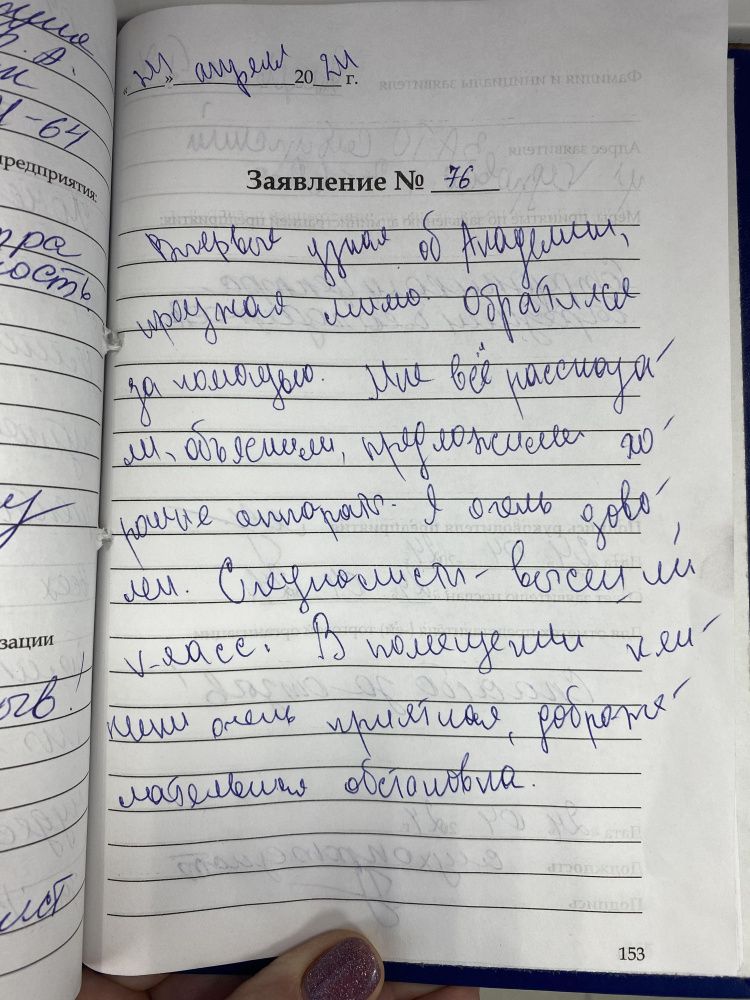 «24» апреля 2024 г.
Заявление № 76
Впервые узнал об Академии,
проезжая мимо. Обратился
за помощью. Мне всё рассказа-
ли, объяснили, предложили хо-
рошие аппараты. Я очень дово-
лен. Специалисты - высший
класс. В помещении кли-
ники очень приятная, доброже-
лательная обстановка.
153
предприятия:
зации